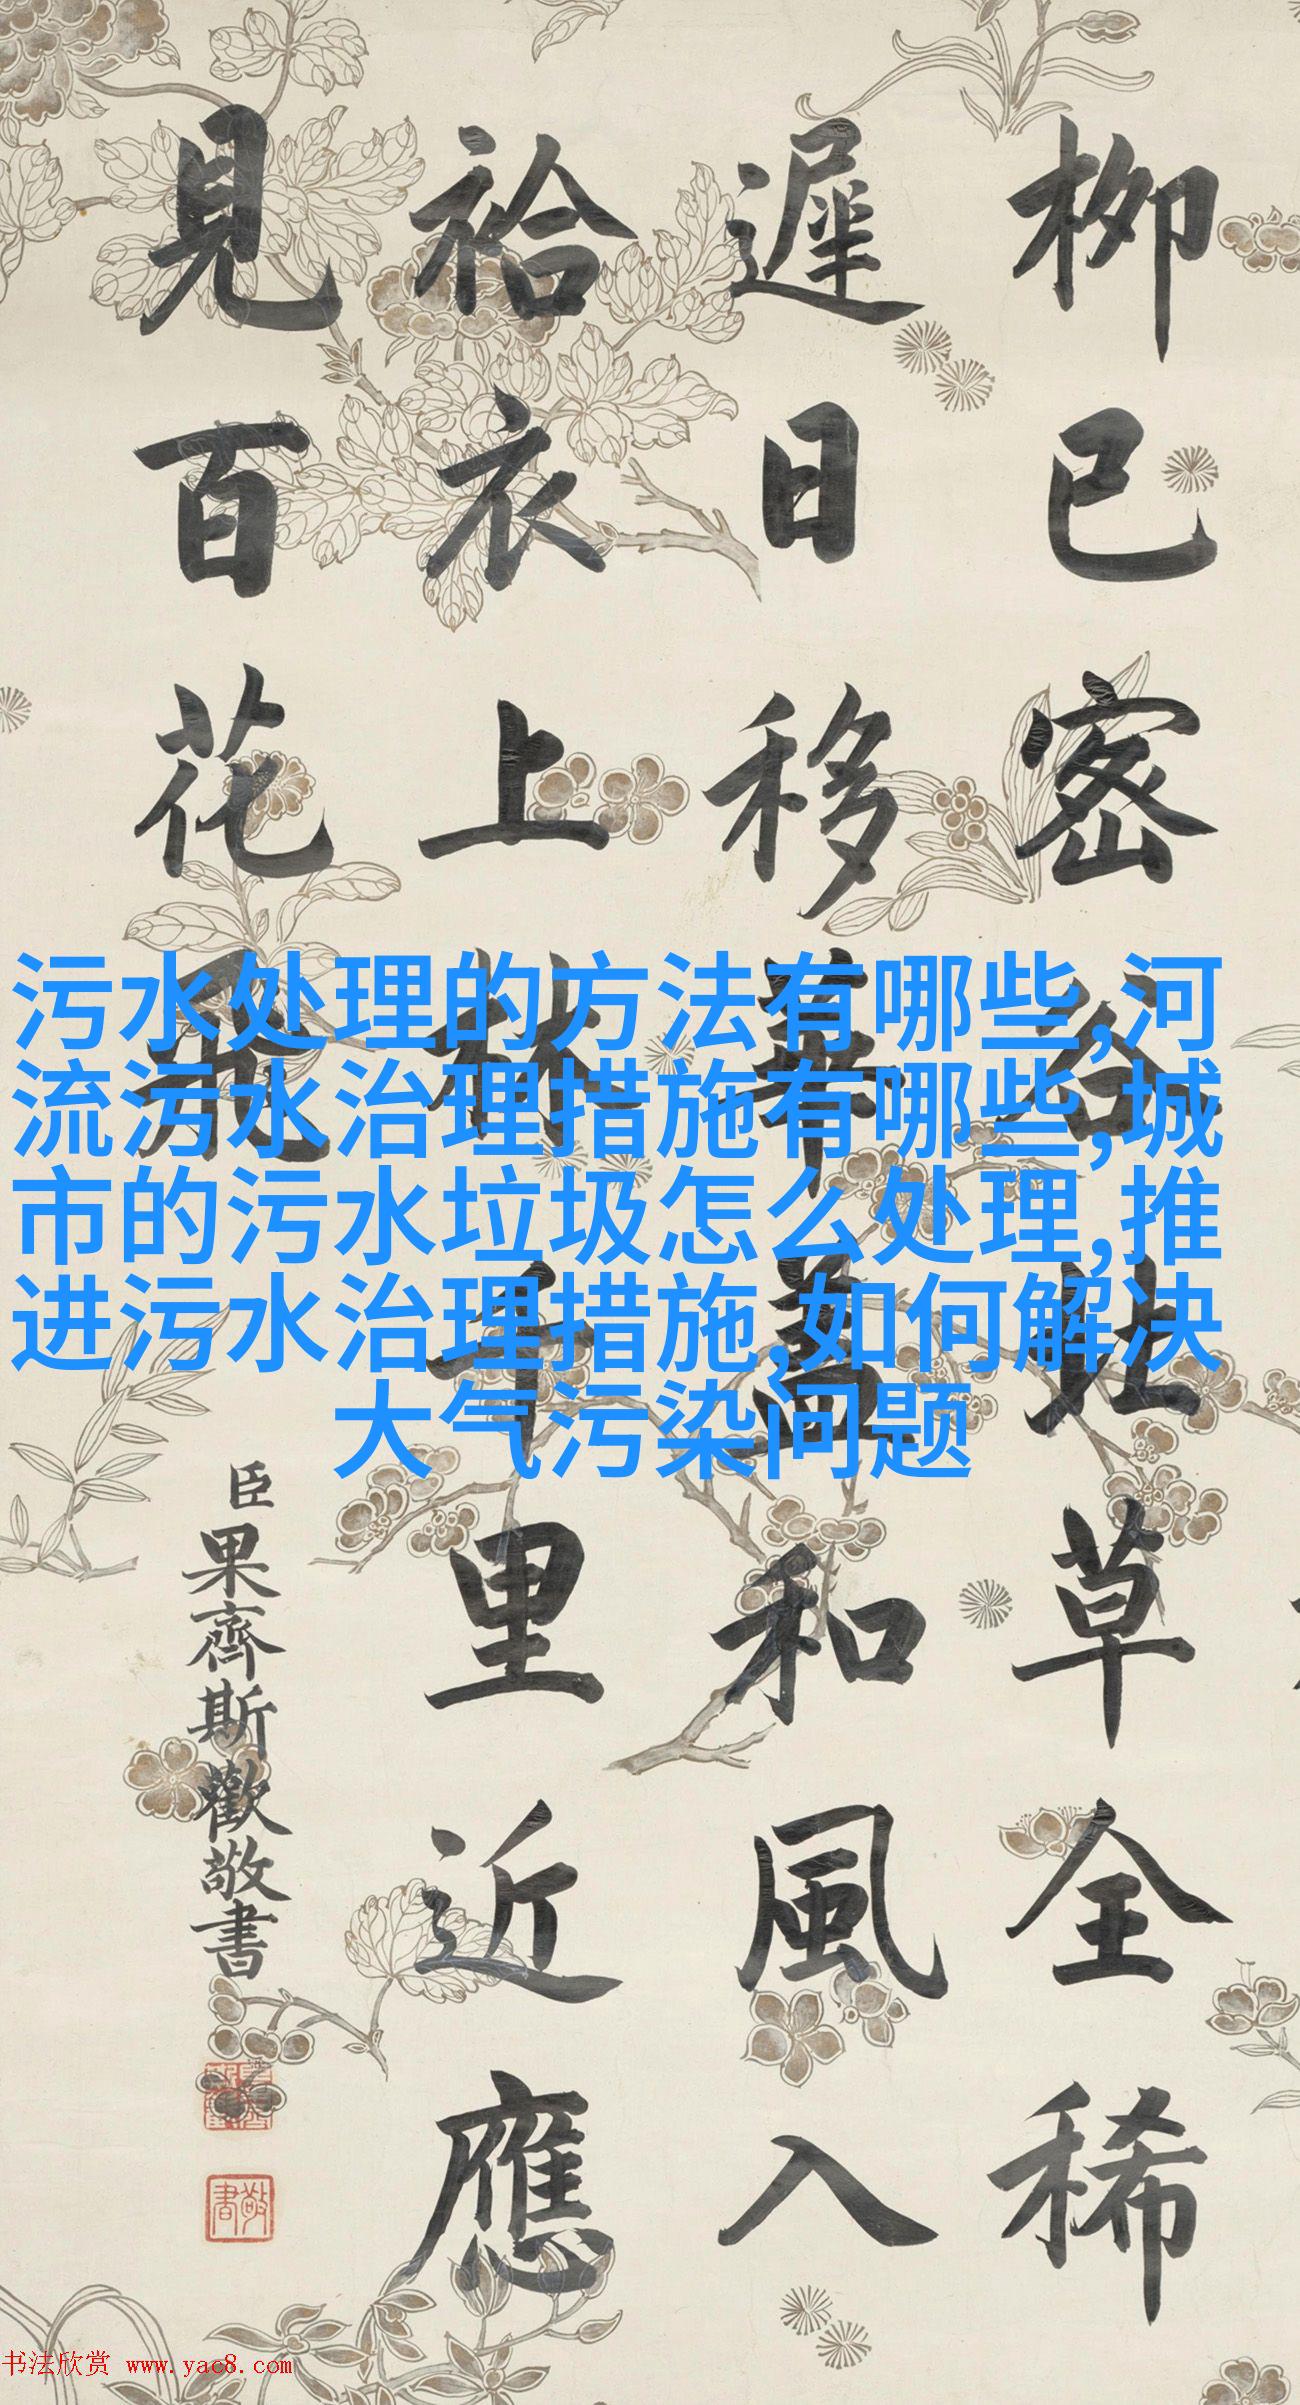 柳已密谷北草全稀
遲日移華蓋和風入
袷衣上林千里近應
見百花飛
臣果齊斯歡敬書
敬書
污水处理的方法有哪些,河
流污水治理措施有哪些,城
市的污水垃圾怎么处理,推
进污水治理措施,如何解决
大气污染问题
书法欣赏 www.yac8.com